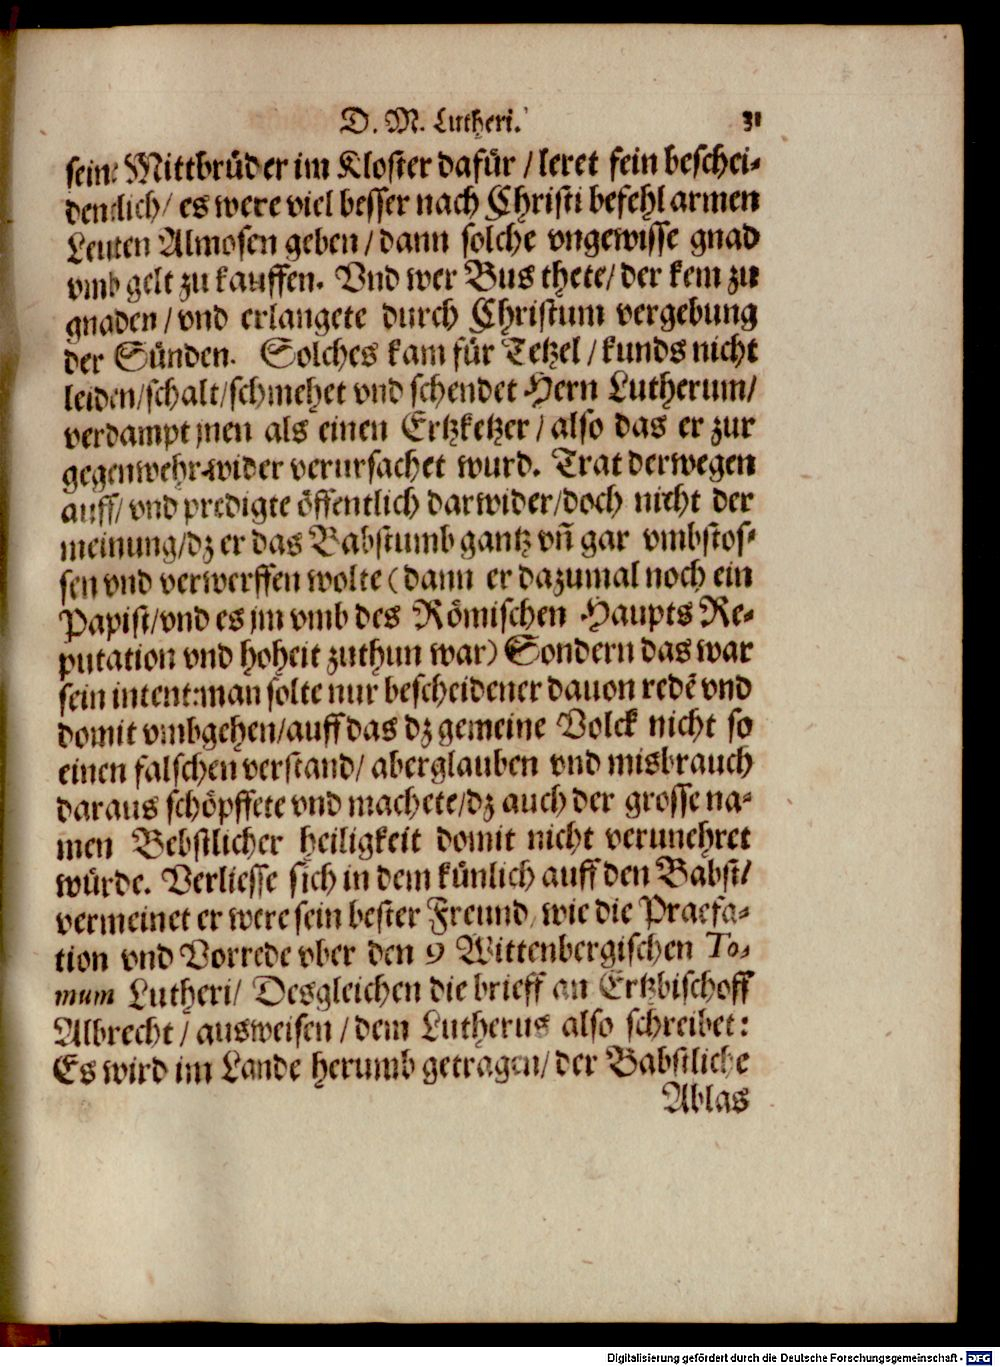 D. M. Lutheri. 31
seine Mittbrüder im Kloster dafür / leret fein beschei-
dentlich / es were viel besser nach Christi befehl armen
Leuten Almosen geben / dann solche vngewisse gnad
vmb gelt zu kauffen. Vnd wer Bus thete / der kem zu
gnaden / vnd erlangete durch Christum vergebung
der Sünden. Solches kam für Tetzel / kunds nicht
leiden / schalt / schmehet vnd schendet Hern Lutherum /
verdampt jnen als einen Ertzketzer / also das er zur
gegenwehr wider verursachet wurd. Trat derwegen
auff / vnd predigte öffentlich darwider / doch nicht der
meinung / dz er das Babstumb gantz vn̄ gar vmbstos-
sen vnd verwerffen wolte (dann er dazumal noch ein
Papist / vnd es jm vmb des Römischen Haupts Re-
putation vnd hoheit zuthun war) Sondern das war
sein intent: man solte nur bescheidener dauon redē vnd
domit vmbgehen / auff das dz gemeine Volck nicht so
einen falschen verstand / aberglauben vnd misbrauch
daraus schöpffete vnd machete / dz auch der grosse na-
men Bebstlicher heiligkeit domit nicht verunehret
würde. Verliesse sich in dem künlich auff den Babst /
vermeinet er were sein bester Freund / wie die Praefa-
tion vnd Vorrede vber den 9 Wittenbergischen To-
mum Lutheri / Desgleichen die brieff an Ertzbischoff
Albrecht / ausweisen / dem Lutherus also schreibet:
Es wird im Lande herumb getragen / der Babstliche
Ablas
Digitalisierung gefördert durch die Deutsche Forschungsgemeinschaft - DFG